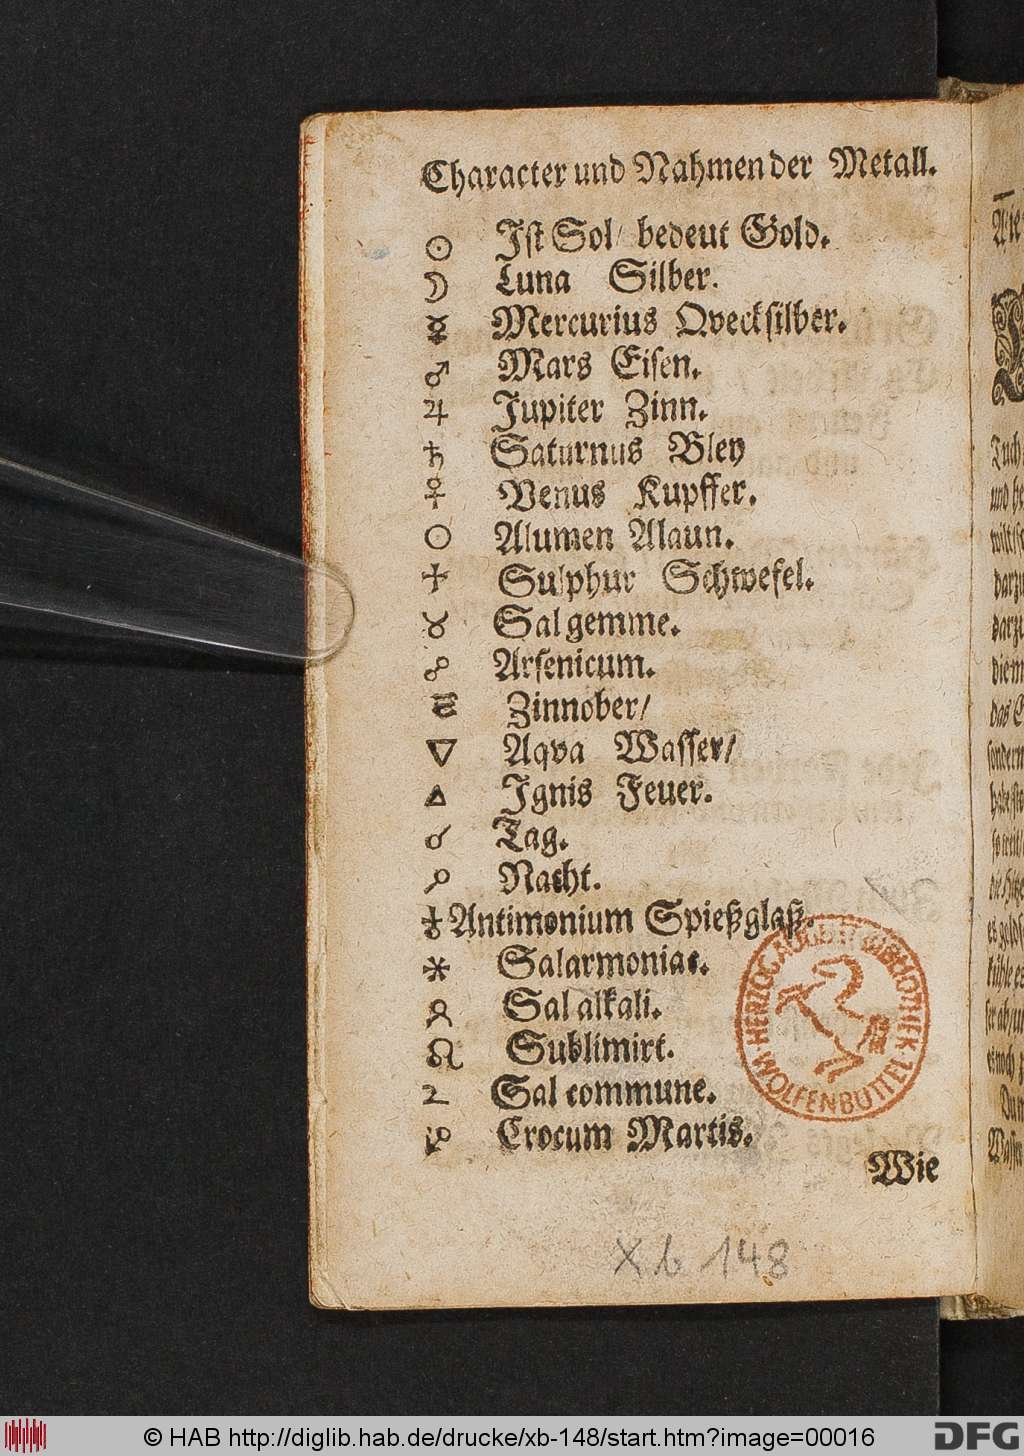 Character und Nahmen der Metall.
☉ Ist Sol/ bedeut Gold.
☽ Luna Silber.
☿ Mercurius Qvecksilber.
♂ Mars Eisen.
♃ Jupiter Zinn.
♄ Saturnus Bley
♀ Venus Kupffer.
○ Alumen Alaun.
Sulphur Schwefel.
♉ Sal gemme.
☍ Arsenicum.
Zinnober/
▽ Aqva Wasser/
△ Ignis Feuer.
☌ Tag.
Nacht.
♁ Antimonium Spießglaß.
Salarmoniac.
Sal alkali.
Sublimirt.
Sal commune.
Crocum Martis.
Wie
HERZOG AUGUST BIBLIOTHEK
WOLFENBÜTTEL
Xb 148
© HAB http://diglib.hab.de/drucke/xb-148/start.htm?image=00016
DFG